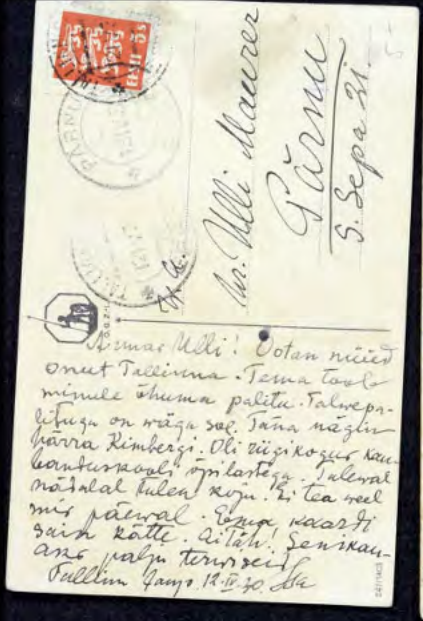 EESTI 5S
PÄRNU
TALLINN
Hr. Ulli Maurer
Pärnu
S. Sepa 21.
Armas Ulli! Ootan nüüd
onut Tallinna. Tema toob
minule õhuma palitu. Talwepa-
lituga on wäga soe. Täna nägin
härra Kimbergi. Oli riigikogus kau-
banduskooli õpilastega. Tulewal
nädalal tulen koju. Ei tea weel
mis päewal. Ema kaardi
sain kätte. Aitäh! Senikau-
aks palju terwiseid
Tallinn 12.IV.30.